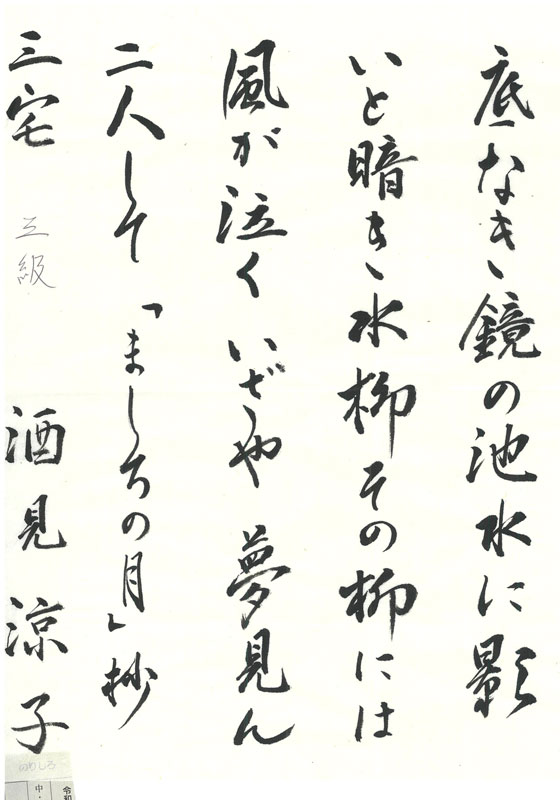 底なき鏡の池水に影
いと暗き水柳その柳には
風が泣くいざや夢見ん
二人して「ましろの月」抄
三宅 三級 酒見涼子
のりしろ
令和
中・